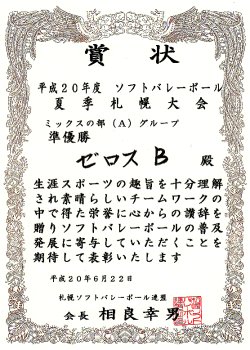 賞状
平成20年度 ソフトバレーボール
夏季札幌大会
ミックスの部（A）グループ
準優勝
ゼロス B 殿
生涯スポーツの趣旨を十分理解
され素晴らしいチームワークの
中で得た栄誉に心からの讃辞を
贈りソフトバレーボールの普及
発展に寄与していただくことを
期待して表彰いたします
平成20年6月22日
札幌ソフトバレーボール連盟
会長 相良幸男